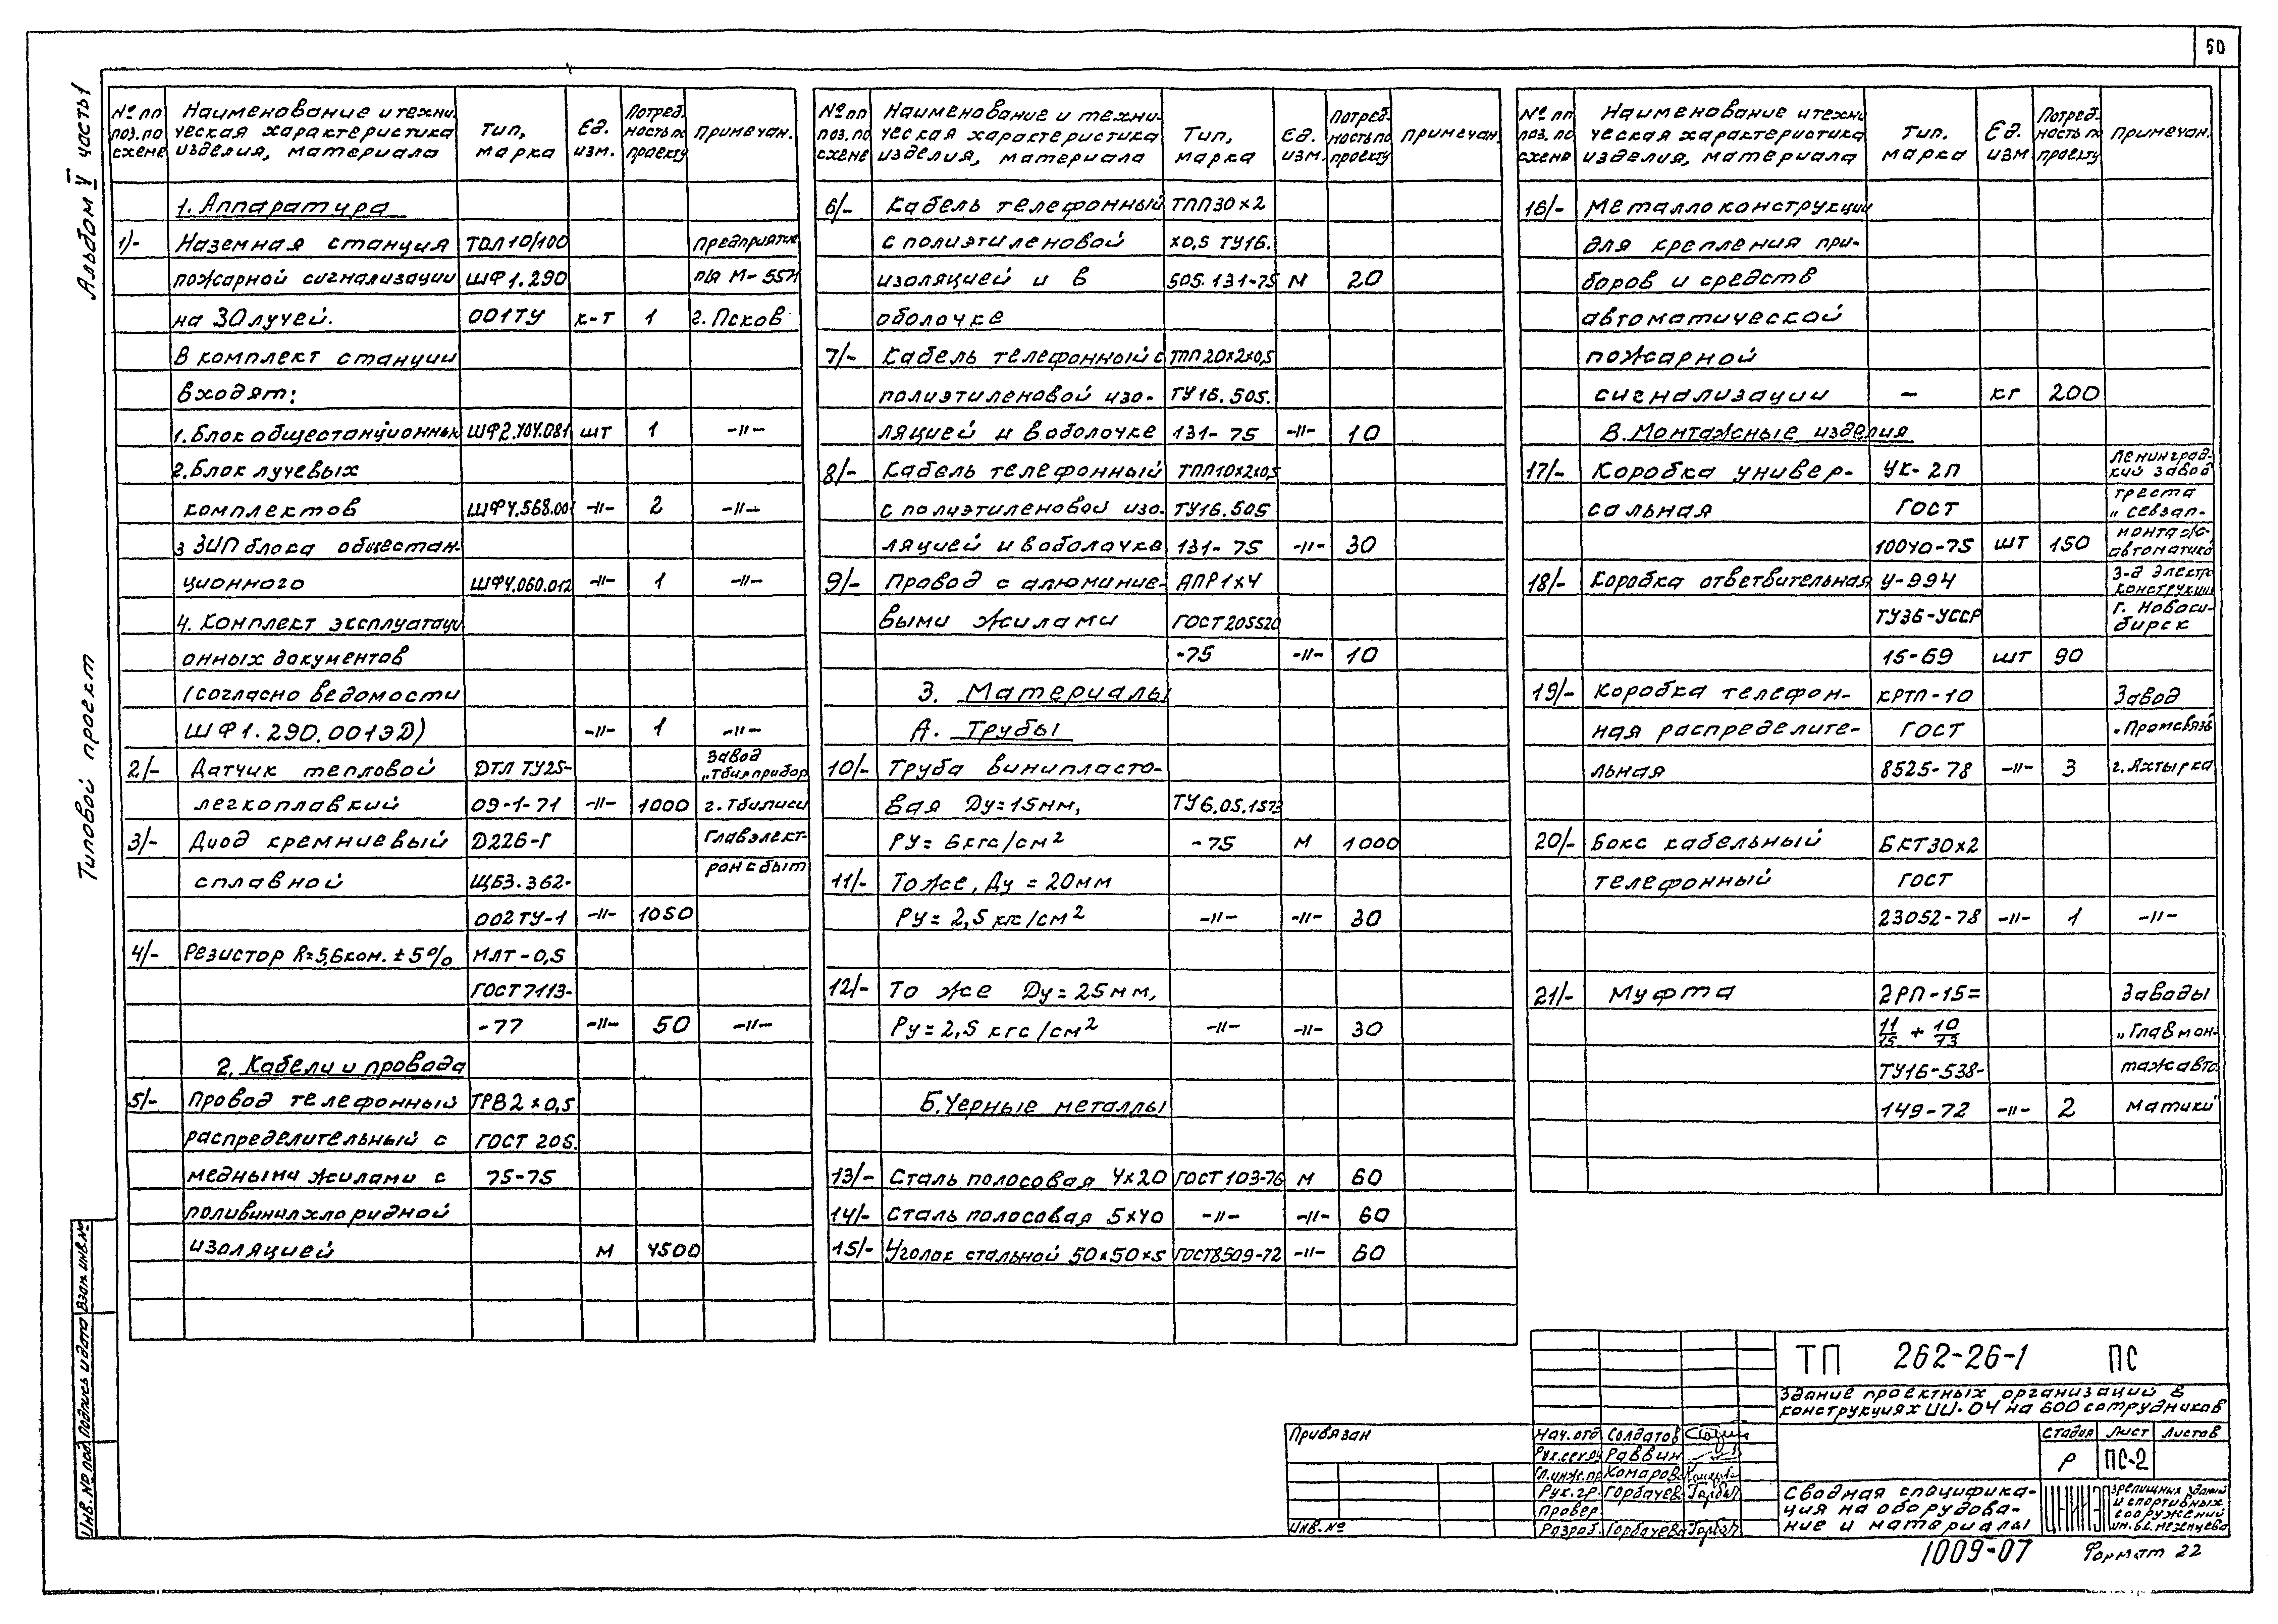 50
Альбом V часть 1
Типовой проект
№ пп поз. по схеме | Наименование и техническая характеристика изделия, материала | Тип, марка | Ед. изм. | Потребность по проекту | Примечан.
1. Аппаратура
1/- Наземная станция ТОЛ10/100 предприятие
пожарной сигнализации ШФ1.290 п/я М-5571
на 30 лучей. 001ТУ к-т 1 г. Псков
В комплект станции
входят:
1. Блок общестанционный ШФ2.404.081 шт 1 -"-
2. Блок лучевых
комплектов ШФ4.568.001 -"- 2 -"-
3 ЗИП блока общестан-
ционного ШФ4.060.012 -"- 1 -"-
4. Комплект эксплуатаци
онных документов
(согласно ведомости
ШФ1.290.001ЭД) -"- 1 -"-
2/- Датчик тепловой ДТЛ ТУ25- завод "Тбилприбор
легкоплавкий 09-1-71 -"- 1000 г. Тбилиси
3/- Диод кремниевый Д226-Г Главэлект-
сплавной ЩБ3.362- ронсбыт
002ТУ-1 -"- 1050
4/- Резистор R=5,6ком. ±5% МЛТ-0,5
ГОСТ7113-
-77 -"- 50 -"-
2. Кабели и провода
5/- Провод телефонный ТРВ2×0,5
распределительный с ГОСТ 205.
медными жилами с 75-75
поливинилхлоридной
изоляцией м 4500
№ пп поз. по схеме | Наименование и техническая характеристика изделия, материала | Тип, марка | Ед. изм. | Потребность по проекту | Примечан.
6/- Кабель телефонный ТПП30×2
с полиэтиленовой ×0,5 ТУ16.
изоляцией и в 505.131-75 м 20
оболочке
7/- Кабель телефонный с ТПП20×2×0,5
полиэтиленовой изо- ТУ16.505.
ляцией и в оболочке 131-75 -"- 10
8/- Кабель телефонный ТПП10×2×0,5
с полиэтиленовой изо. ТУ16.505
ляцией и в оболочке 131-75 -"- 30
9/- Провод с алюминие- АПР1×4
выми жилами ГОСТ20552О
-75 -"- 10
3. Материалы
А. Трубы
10/- Труба винипласто-
вая Ду=15мм, ТУ6.05.1573
РУ=6кгс/см² -75 м 1000
11/- То же, Ду=20мм
РУ=2,5 кгс/см² -"- -"- 30
12/- То же Ду=25мм,
Ру=2,5 кгс/см² -"- -"- 30
Б. Черные металлы
13/- Сталь полосовая 4×20 ГОСТ 103-76 м 60
14/- Сталь полосовая 5×40 -"- -"- 60
15/- Уголок стальной 50×50×5 ГОСТ8509-72 -"- 60
№ пп поз. по схеме | Наименование и техни ческая характеристика изделия, материала | Тип. марка | Ед. изм | Потребность по проекту | Примечан.
16/- Металлоконструкции
для крепления при-
боров и средств
автоматической
пожарной
сигнализации - кг 200
В. Монтажные изделия
17/- Коробка универ- УК-2П Ленинград- кий завод
сальная ГОСТ треста "Севзап-
10040-75 шт 150 монтаж- автоматика
18/- Коробка ответвительная У-994 З-д электро конструкции
ТУ36-УССР г. Новоси- бирск
15-69 шт 90
19/- Коробка телефон- КРТП-10 Завод
ная распределите- ГОСТ "Промсвязь
льная 8525-78 -"- 3 г. Ахтырка
20/- Бокс кабельный БКТ30×2
телефонный ГОСТ
23052-78 -"- 1 -"-
21/- Муфта 2РП-15= Заводы
11/15 + 10/73 "Главмон-
ТУ16-538- тажавто
149-72 -"- 2 матики"
ТП 262-26-1 ПС
Здание проектных организаций в
конструкциях ИИ-04 на 600 сотрудников
Привязан
Инв. №
Нач. отд. Солдатов
Рук.сект. Раввин
Гл.инж.пр. Комаров
Рук. гр. Горбачева
Провер
Разраб. Горбачева
Стадия Лист Листов
Р ПС-2
Сводная специфика-
ция на оборудова-
ние и материалы
ЦНИИЭП
зрелищных зданий
и спортивных
сооружений
им. Б.С. Мезенцева
1009-07 Формат 22
Инв. № под. Подпись и дата Взам. инв. №